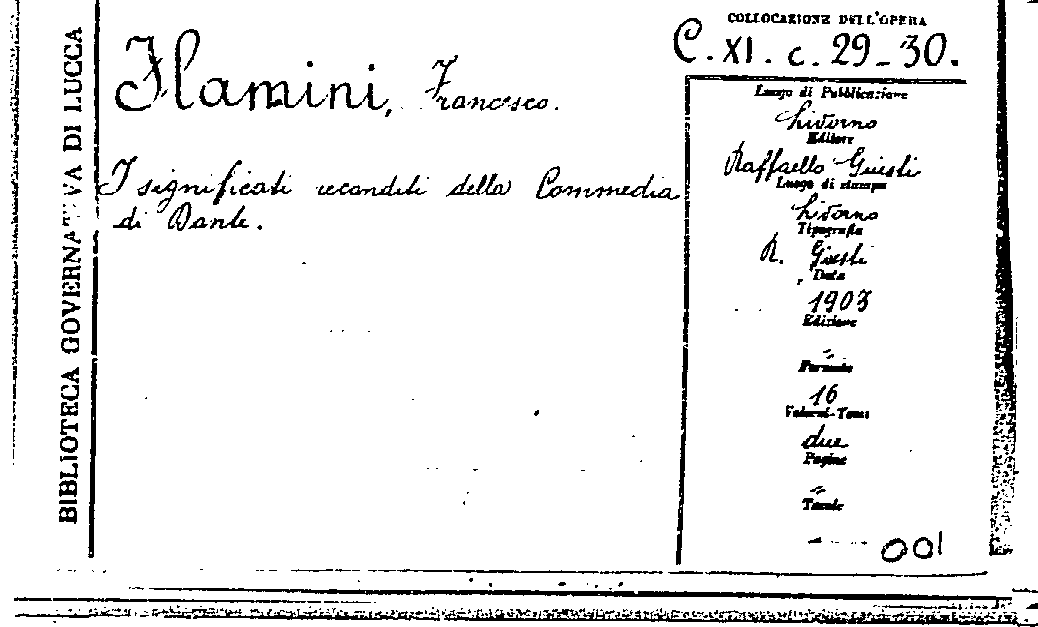 BIBLIOTECA GOVERNATIVA DI LUCCA
Flamini, Francesco.
I significati reconditi della Commedia
di Dante.
COLLOCAZIONE DELL'OPERA
C. XI. c. 29-30.
Luogo di Pubblicazione
Livorno
Editore
Raffaello Giusti
Luogo di stampa
Livorno
Tipografia
R. Giusti
Data
1903
Edizione
Formato
16
Volumi-Tomi
due
Pagine
Tavole
001